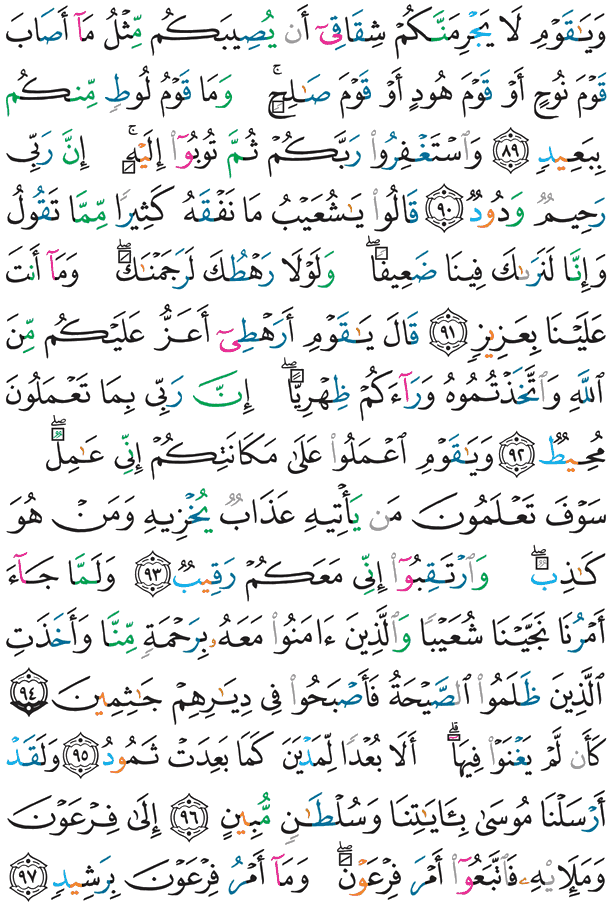 وَيَٰقَوْمِ لَا يَجْرِمَنَّكُمْ شِقَاقِىٓ أَن يُصِيبَكُم مِّثْلُ مَآ أَصَابَ
قَوْمَ نُوحٍ أَوْ قَوْمَ هُودٍ أَوْ قَوْمَ صَٰلِحٍۚ وَمَا قَوْمُ لُوطٍ مِّنكُم
بِبَعِيدٍ ٨٩ وَٱسْتَغْفِرُوا۟ رَبَّكُمْ ثُمَّ تُوبُوٓا۟ إِلَيْهِۚ إِنَّ رَبِّى
رَحِيمٌ وَدُودٌ ٩٠ قَالُوا۟ يَٰشُعَيْبُ مَا نَفْقَهُ كَثِيرًا مِّمَّا تَقُولُ
وَإِنَّا لَنَرَىٰكَ فِينَا ضَعِيفًاۖ وَلَوْلَا رَهْطُكَ لَرَجَمْنَٰكَۖ وَمَآ أَنتَ
عَلَيْنَا بِعَزِيزٍ ٩١ قَالَ يَٰقَوْمِ أَرَهْطِىٓ أَعَزُّ عَلَيْكُم مِّنَ
ٱللَّهِ وَٱتَّخَذْتُمُوهُ وَرَآءَكُمْ ظِهْرِيًّاۖ إِنَّ رَبِّى بِمَا تَعْمَلُونَ
مُحِيطٌ ٩٢ وَيَٰقَوْمِ ٱعْمَلُوا۟ عَلَىٰ مَكَانَتِكُمْ إِنِّى عَٰمِلٌۖ
سَوْفَ تَعْلَمُونَ مَن يَأْتِيهِ عَذَابٌ يُخْزِيهِ وَمَنْ هُوَ
كَٰذِبٌۖ وَٱرْتَقِبُوٓا۟ إِنِّى مَعَكُمْ رَقِيبٌ ٩٣ وَلَمَّا جَآءَ
أَمْرُنَا نَجَّيْنَا شُعَيْبًا وَٱلَّذِينَ ءَامَنُوا۟ مَعَهُۥ بِرَحْمَةٍ مِّنَّا وَأَخَذَتِ
ٱلَّذِينَ ظَلَمُوا۟ ٱلصَّيْحَةُ فَأَصْبَحُوا۟ فِى دِيَٰرِهِمْ جَٰثِمِينَ ٩٤
كَأَن لَّمْ يَغْنَوْا۟ فِيهَآۗ أَلَا بُعْدًا لِّمَدْيَنَ كَمَا بَعِدَتْ ثَمُودُ ٩٥ وَلَقَدْ
أَرْسَلْنَا مُوسَىٰ بِـَٔايَٰتِنَا وَسُلْطَٰنٍ مُّبِينٍ ٩٦ إِلَىٰ فِرْعَوْنَ
وَمَلَإِي۟هِۦ فَٱتَّبَعُوٓا۟ أَمْرَ فِرْعَوْنَۖ وَمَآ أَمْرُ فِرْعَوْنَ بِرَشِيدٍ ٩٧